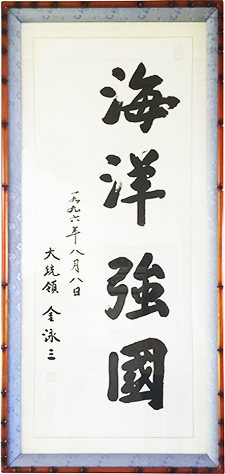 海洋強國
一九九六年八月八日
大統領 金泳三